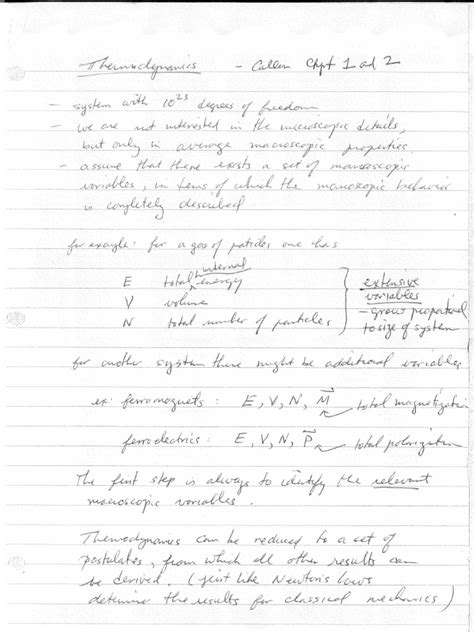 Thermodynamics - Callen Chpt 1 and 2
- system with 10^23 degrees of freedom
- we are not interested in the microscopic details,
but only in average macroscopic properties.
- assume that there exists a set of macroscopic
variables, in terms of which the macroscopic behavior
is completely described
for example: for a gas of particles one has
E total internal energy
V volume
N total number of particles
} extensive
variables
- grow proportional
to size of system
for another system there might be additional variables
ex: ferromagnets: E, V, N, M⃗ total magnetization
ferroelectrics: E, V, N, P⃗ total polarization
The first step is always to identify the relevant
macroscopic variables.
Thermodynamics can be reduced to a set of
postulates, from which all other results can
be derived. (just like Newton's laws
determine the results for classical mechanics)